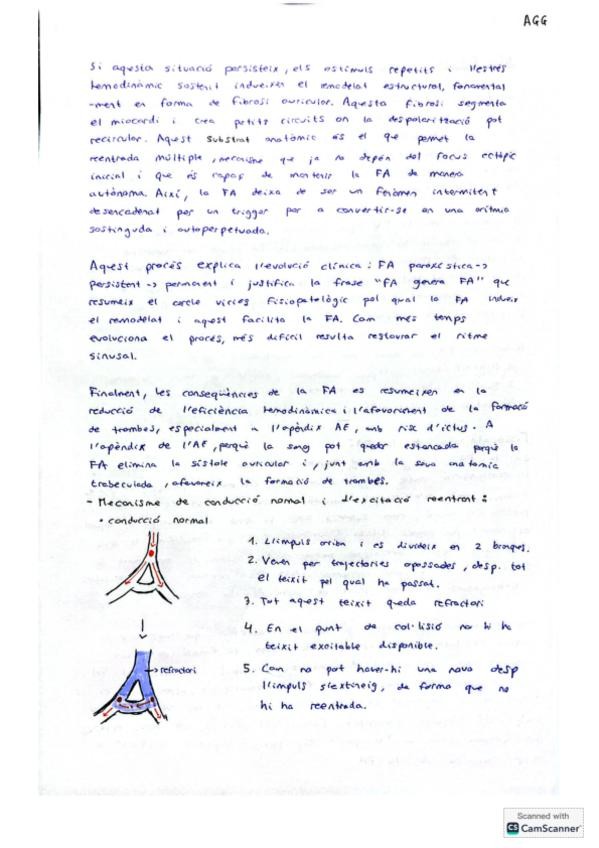 AGG
Si aquesta situació persisteix, els estímuls repetits i l'estrés
hemodinàmic sostenit indueixen el remodelat estructural, fonamental
-ment en forma de fibrosi auricular. Aquesta fibrosi segmenta
el miocardi i crea petits circuits on la despolarització pot
recircular. Aquest substrat anatòmic és el que permet la
reentrada múltiple, mecanisme que ja no depèn del focus ectòpic
inicial i que és capaç de mantenir la FA de manera
autònoma. Així, la FA deixa de ser un fenòmen intermitent
desencadenat per un trigger per a convertir-se en una arítmia
sostinguda i autoperpetuada.
Aquest procés explica l'evolució clínica: FA paroxística->
persistent -> permanent i justifica la frase "FA genera FA" que
resumeix el cercle viciós fisiopatològic pel qual la FA indueix
el remodelat i aquest facilita la FA. Com més temps
evoluciona el procés, més difícil resulta restaurar el ritme
sinusal.
Finalment, les conseqüències de la FA es resumeixen en la
reducció de l'eficiència hemodinàmica i l'afavoriment de la formació
de trombes, especialment a l'apèndix AE, amb risc d'ictus. A
l'apèndix de l'AE, perquè la sang pot quedar estancada perquè la
FA elimina la sístole auricular i, junt amb la seua anatomia
trabeculada, afavoreix la formació de trombes.
- Mecanisme de conducció normal i d'excitació reentrant:
• conducció normal
1. L'impuls arriba i es divideix en 2 branques.
2. Venen per trajectòries oposades, desp. tot
el teixit pel qual ha passat.
3. Tot aquest teixit queda refractori
4. En el punt de col·lisió no hi ha
teixit excitable disponible.
→ refractori
5. Com no pot haver-hi una nova desp
l'impuls s'extingeig, de forma que no
hi ha reentrada.
Scanned with
CS CamScanner